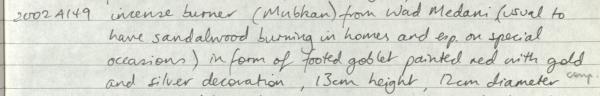 2002 A149 incense burner (Mubkhan) from Wad Medani (usual to
have sandalwood burning in homes and esp. on special
occasions) in form of footed goblet painted red with gold
and silver decoration, 13cm height, 12cm diameter comp.